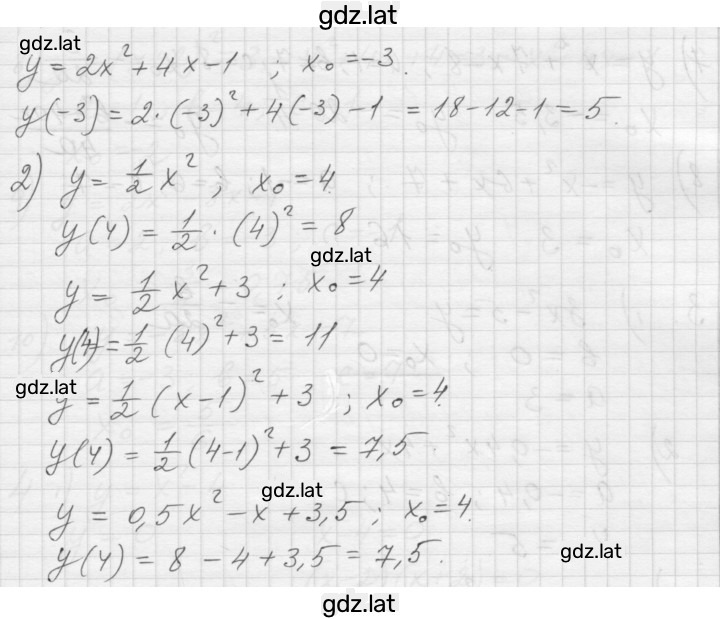 gdz.lat
gdz.lat
y = 2x² + 4x - 1 ; x₀ = -3.
y(-3) = 2·(-3)² + 4(-3) - 1 = 18 - 12 - 1 = 5.
2) y = 1/2 x² ; x₀ = 4.
y(4) = 1/2 · (4)² = 8
gdz.lat
y = 1/2 x² + 3 ; x₀ = 4
y(4) = 1/2 (4)² + 3 = 11
gdz.lat
y = 1/2 (x-1)² + 3 ; x₀ = 4.
y(4) = 1/2 (4-1)² + 3 = 7,5
gdz.lat
y = 0,5x² - x + 3,5 ; x₀ = 4.
y(4) = 8 - 4 + 3,5 = 7,5.
gdz.lat
gdz.lat